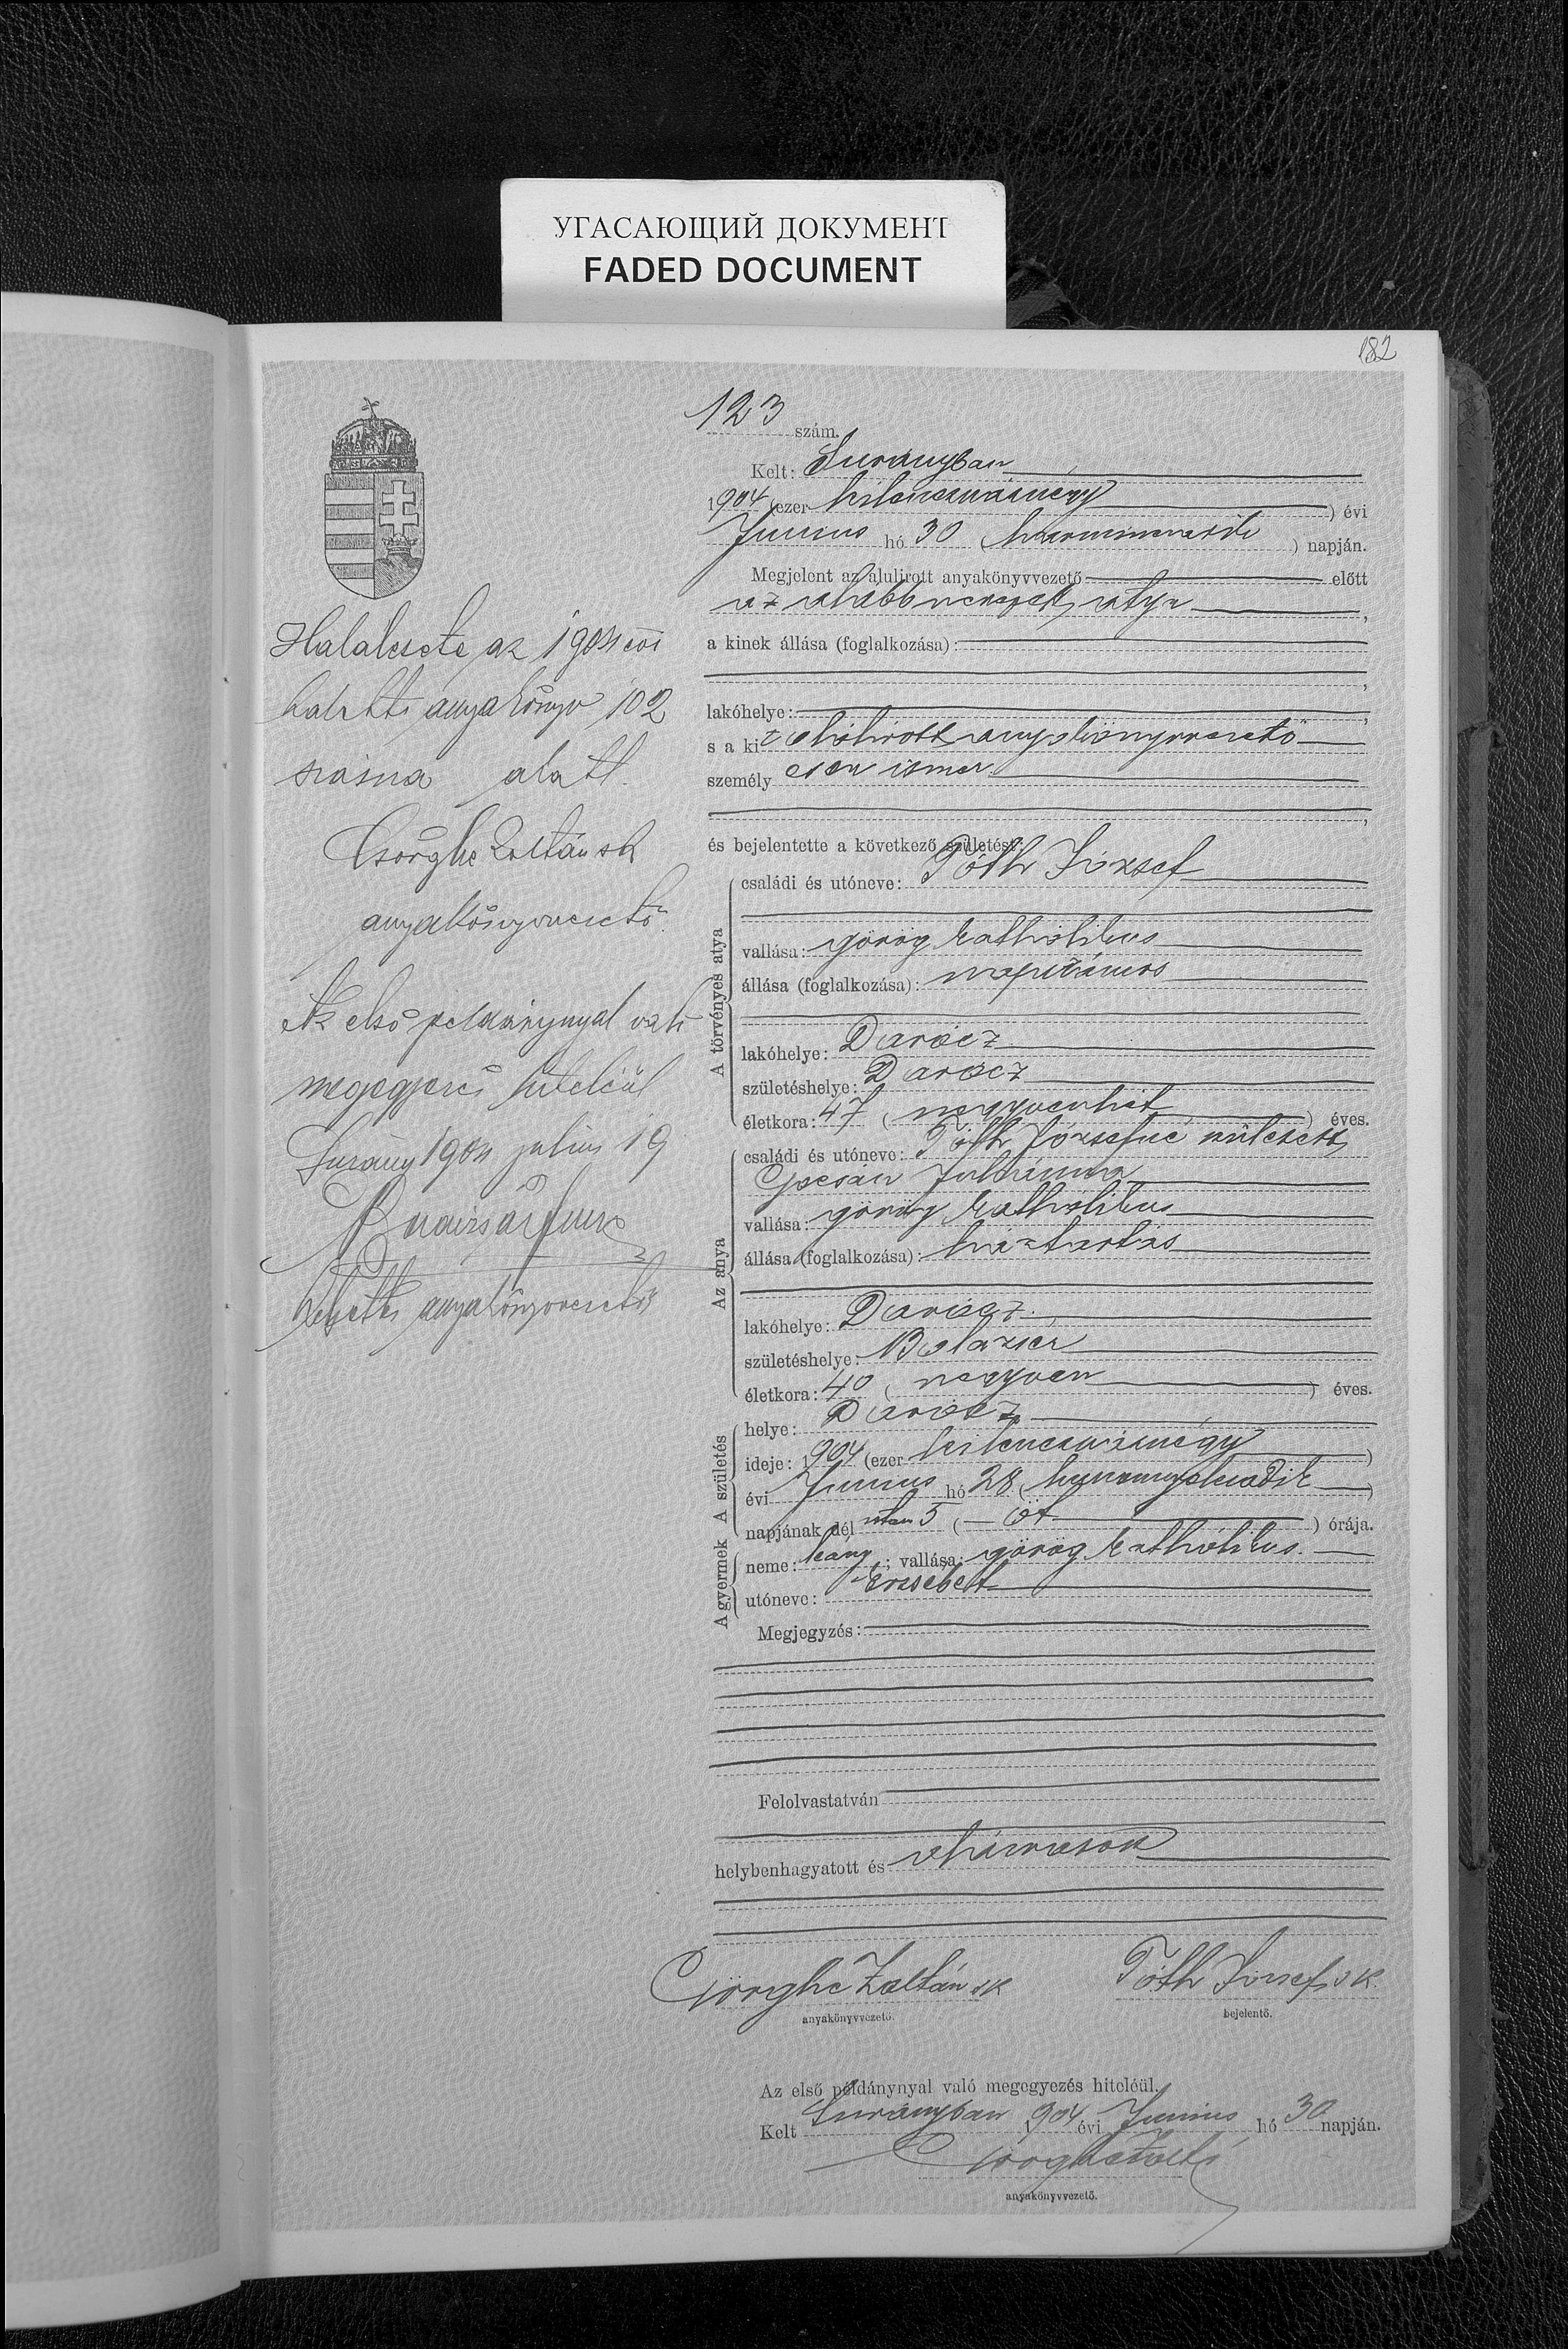 УГАСАЮЩИЙ ДОКУМЕНТ
FADED DOCUMENT
182
123 szám.
Kelt: Surányban
1904 (ezer kilenczszáznégy) évi
Junius hó 30 (harminczadik) napján.
Megjelent az alulirott anyakönyvvezető előtt
az alább nevezett atya,
a kinek állása (foglalkozása):
lakóhelye:
s a kit alulirott anyakönyvvezető
személyesen ismer
és bejelentette a következő születést:
A törvényes atya
családi és utóneve: Tóth József
vallása: görög katholikus
állása (foglalkozása): napszámos
lakóhelye: Darócz
születéshelye: Darócz
életkora: 47 (negyvenhét) éves.
Az anya
családi és utóneve: Tóth Józsefné született
Julánna
vallása: görög katholikus
állása (foglalkozása): háztartás
lakóhelye: Darócz
születéshelye: Balázsér
életkora: 40 (negyven) éves.
A születés
helye: Darócz
ideje: 1904 (ezer kilenczszáznégy)
évi Junius hó 28 (huszonnyolczadik)
napjának dél után 5 (öt) órája.
A gyermek
neme: leány; vallása: görög katholikus.
utóneve: Erzsébet
Megjegyzés:
Felolvastatván
helybenhagyatott és aláiratott
Csörghe Zoltán sk
anyakönyvvezető.
Tóth József sk.
bejelentő.
Az első példánynyal való megegyezés hiteléül.
Kelt Surányban 1904 évi Junius hó 30 napján.
Csörghe Zoltán
anyakönyvvezető.
Halalesete az 1904 évi
halotti anyakönyv 102
száma alatt.
Csörghe Zoltán sk
anyakönyvvezető.
Az első peldánynyal való
megegyezés hiteléül
Surány 1904 julius 19
helyettes anyakönyvvezető